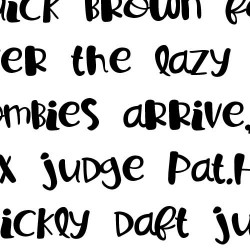 uick brown f
ver the lazy
ombies arrive,
x judge Pat.H
ickly Daft ju